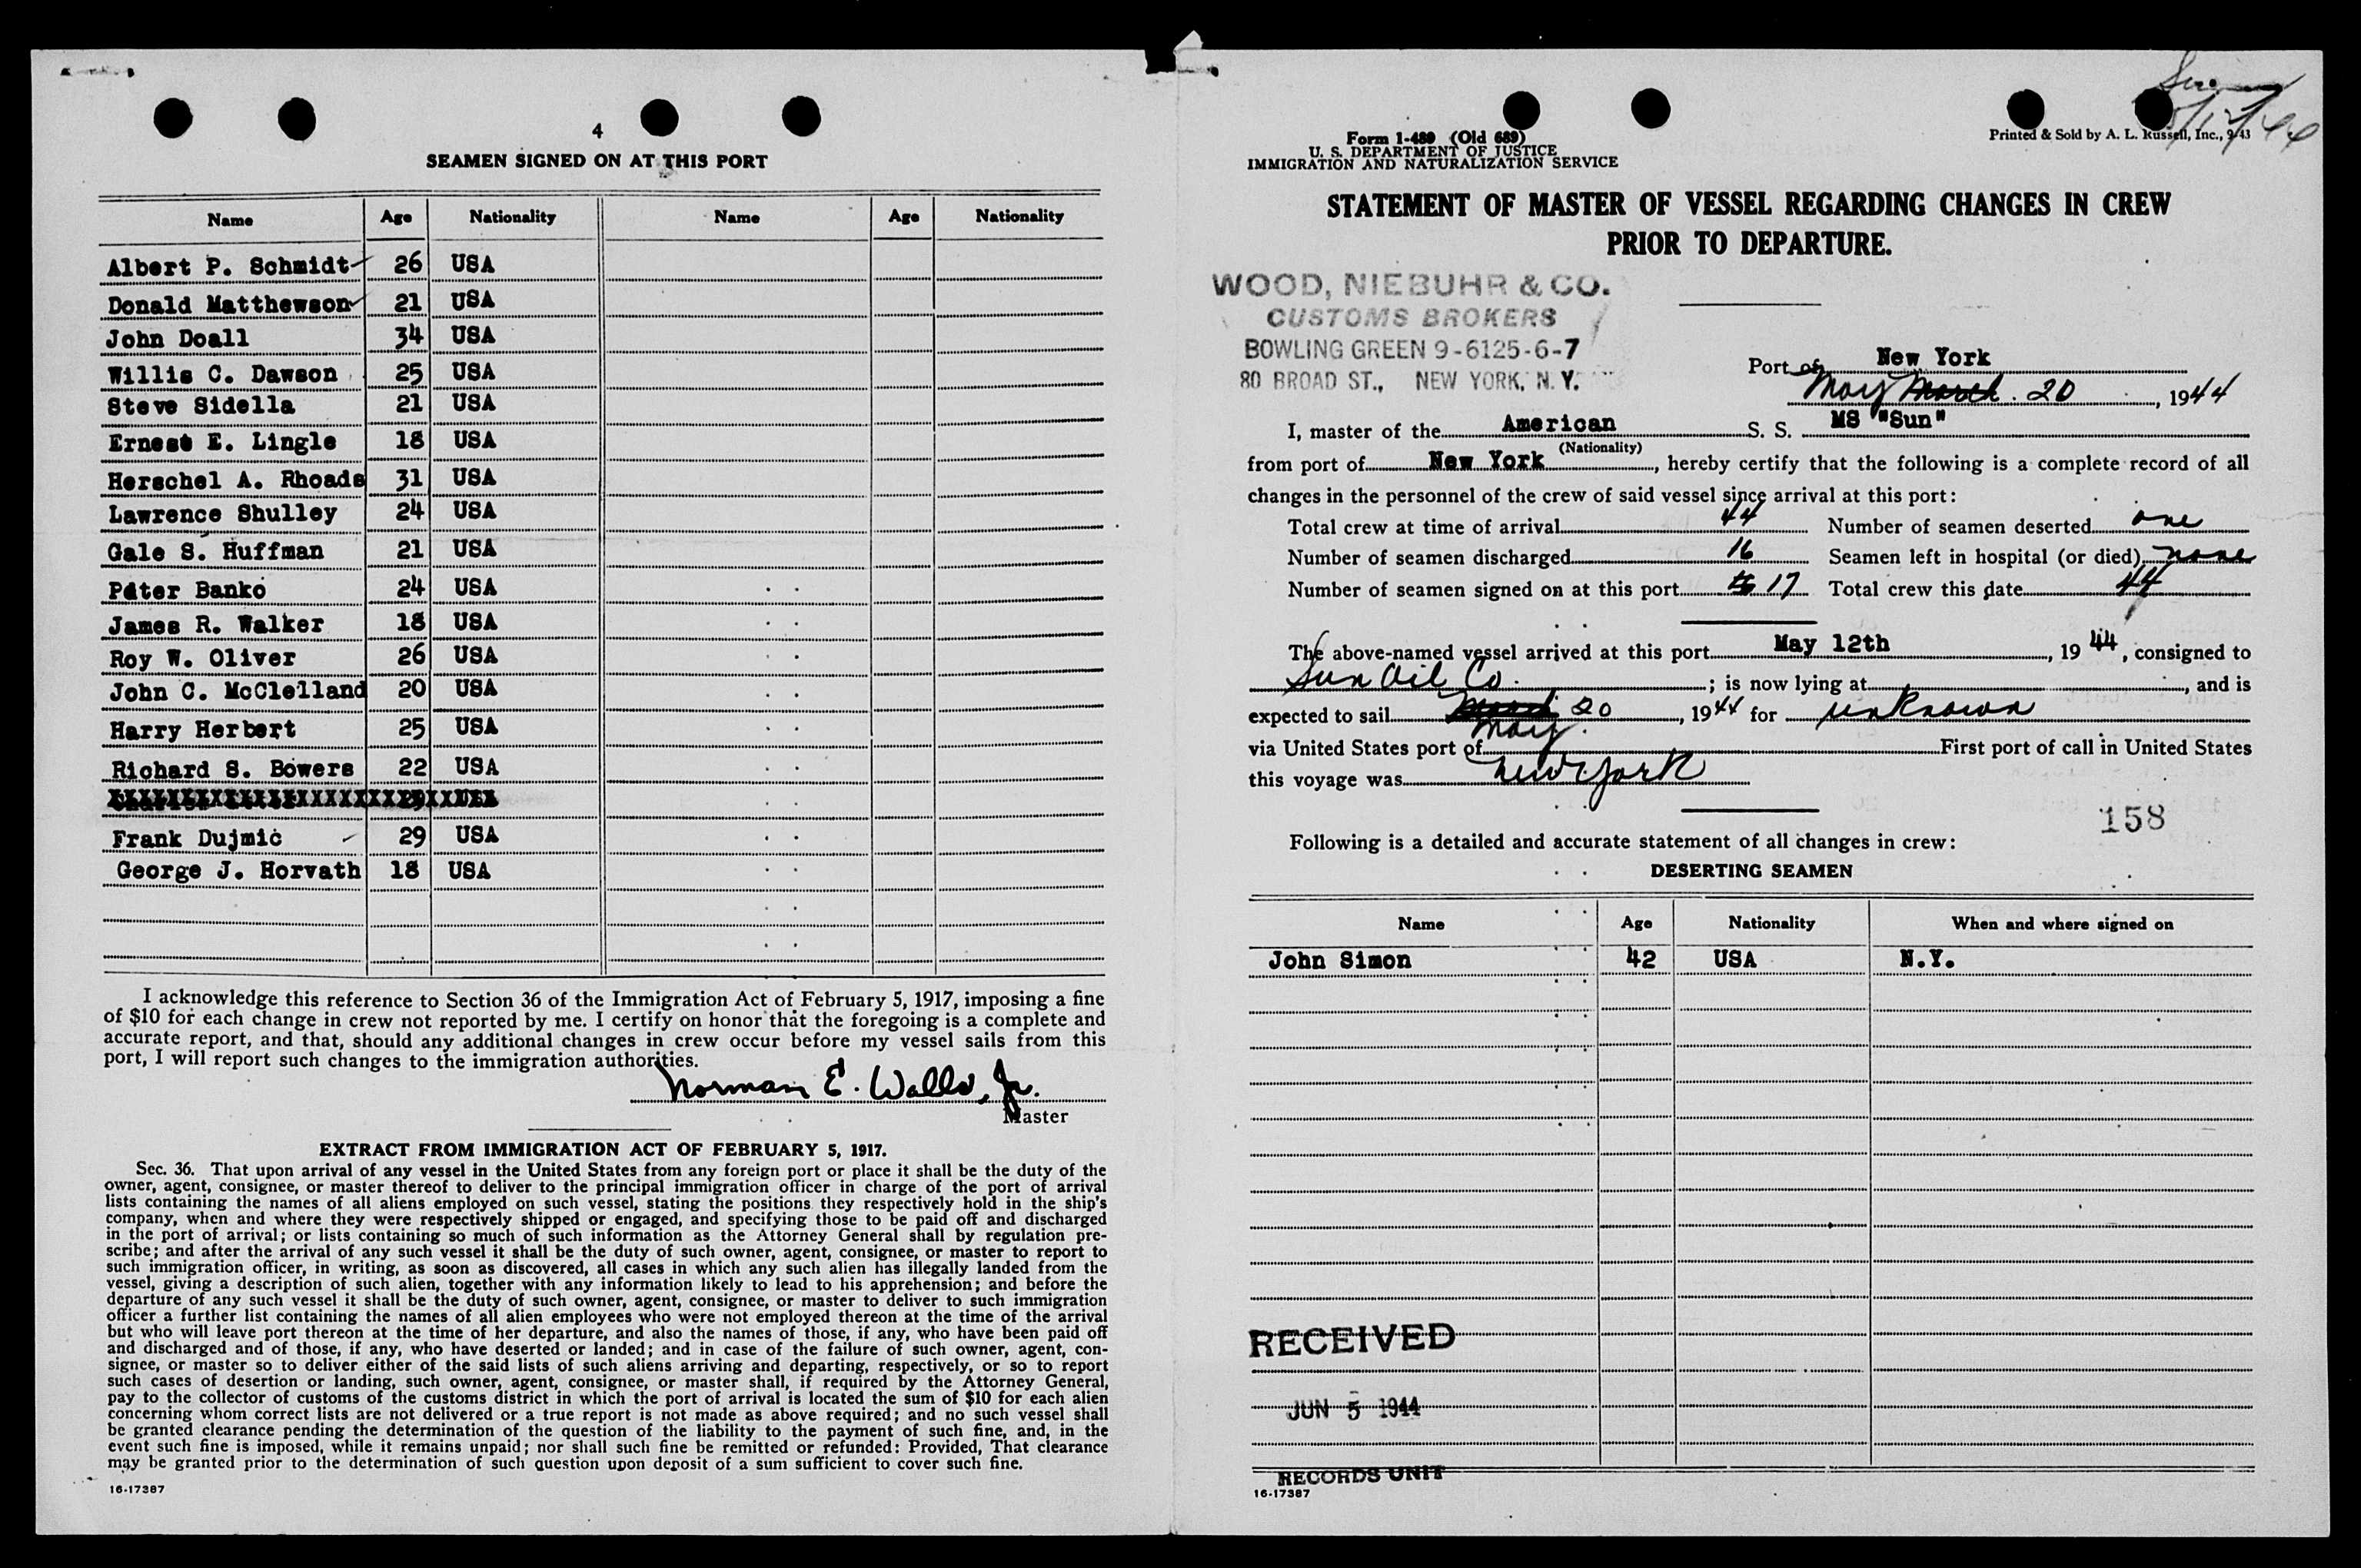 4
SEAMEN SIGNED ON AT THIS PORT
Name Age Nationality Name Age Nationality
Albert P. Schmidt 26 USA
Donald Matthewson 21 USA
John Doall 34 USA
Willis C. Dawson 25 USA
Steve Sidella 21 USA
Ernest E. Lingle 18 USA
Herschel A. Rhoads 31 USA
Lawrence Shulley 24 USA
Gale S. Huffman 21 USA
Peter Banko 24 USA
James R. Walker 18 USA
Roy W. Oliver 26 USA
John C. McClelland 20 USA
Harry Herbert 25 USA
Richard S. Bowers 22 USA
Frank Dujmic 29 USA
George J. Horvath 18 USA
I acknowledge this reference to Section 36 of the Immigration Act of February 5, 1917, imposing a fine
of $10 for each change in crew not reported by me. I certify on honor that the foregoing is a complete and
accurate report, and that, should any additional changes in crew occur before my vessel sails from this
port, I will report such changes to the immigration authorities.
Norman E. Walls, Jr.
Master
EXTRACT FROM IMMIGRATION ACT OF FEBRUARY 5, 1917.
Sec. 36. That upon arrival of any vessel in the United States from any foreign port or place it shall be the duty of the
owner, agent, consignee, or master thereof to deliver to the principal immigration officer in charge of the port of arrival
lists containing the names of all aliens employed on such vessel, stating the positions they respectively hold in the ship's
company, when and where they were respectively shipped or engaged, and specifying those to be paid off and discharged
in the port of arrival; or lists containing so much of such information as the Attorney General shall by regulation pre-
scribe; and after the arrival of any such vessel it shall be the duty of such owner, agent, consignee, or master to report to
such immigration officer, in writing, as soon as discovered, all cases in which any such alien has illegally landed from the
vessel, giving a description of such alien, together with any information likely to lead to his apprehension; and before the
departure of any such vessel it shall be the duty of such owner, agent, consignee, or master to deliver to such immigration
officer a further list containing the names of all alien employees who were not employed thereon at the time of the arrival
but who will leave port thereon at the time of her departure, and also the names of those, if any, who have been paid off
and discharged and of those, if any, who have deserted or landed; and in case of the failure of such owner, agent, con-
signee, or master so to deliver either of the said lists of such aliens arriving and departing, respectively, or so to report
such cases of desertion or landing, such owner, agent, consignee, or master shall, if required by the Attorney General,
pay to the collector of customs of the customs district in which the port of arrival is located the sum of $10 for each alien
concerning whom correct lists are not delivered or a true report is not made as above required; and no such vessel shall
be granted clearance pending the determination of the question of the liability to the payment of such fine, and, in the
event such fine is imposed, while it remains unpaid; nor shall such fine be remitted or refunded: Provided, That clearance
may be granted prior to the determination of such question upon deposit of a sum sufficient to cover such fine.
16-17387
Form 1-489 (Old 689)
U. S. DEPARTMENT OF JUSTICE
IMMIGRATION AND NATURALIZATION SERVICE
Printed & Sold by A. L. Russell, Inc., 9/43
STATEMENT OF MASTER OF VESSEL REGARDING CHANGES IN CREW
PRIOR TO DEPARTURE.
WOOD, NIEBUHR & CO.
CUSTOMS BROKERS
BOWLING GREEN 9-6125-6-7
80 BROAD ST., NEW YORK, N. Y.
Port of New York
May March 20, 1944
I, master of the American S. S. MS "Sun"
(Nationality)
from port of New York, hereby certify that the following is a complete record of all
changes in the personnel of the crew of said vessel since arrival at this port:
Total crew at time of arrival 44 Number of seamen deserted one
Number of seamen discharged 16 Seamen left in hospital (or died) none
Number of seamen signed on at this port 17 Total crew this date 44
The above-named vessel arrived at this port May 12th, 1944, consigned to
Sun Oil Co.; is now lying at, and is
expected to sail March 20, 1944 for unknown
May
via United States port of First port of call in United States
this voyage was New York
158
Following is a detailed and accurate statement of all changes in crew:
DESERTING SEAMEN
Name Age Nationality When and where signed on
John Simon 42 USA N.Y.
RECEIVED
JUN 5 1944
RECORDS UNIT
16-17387